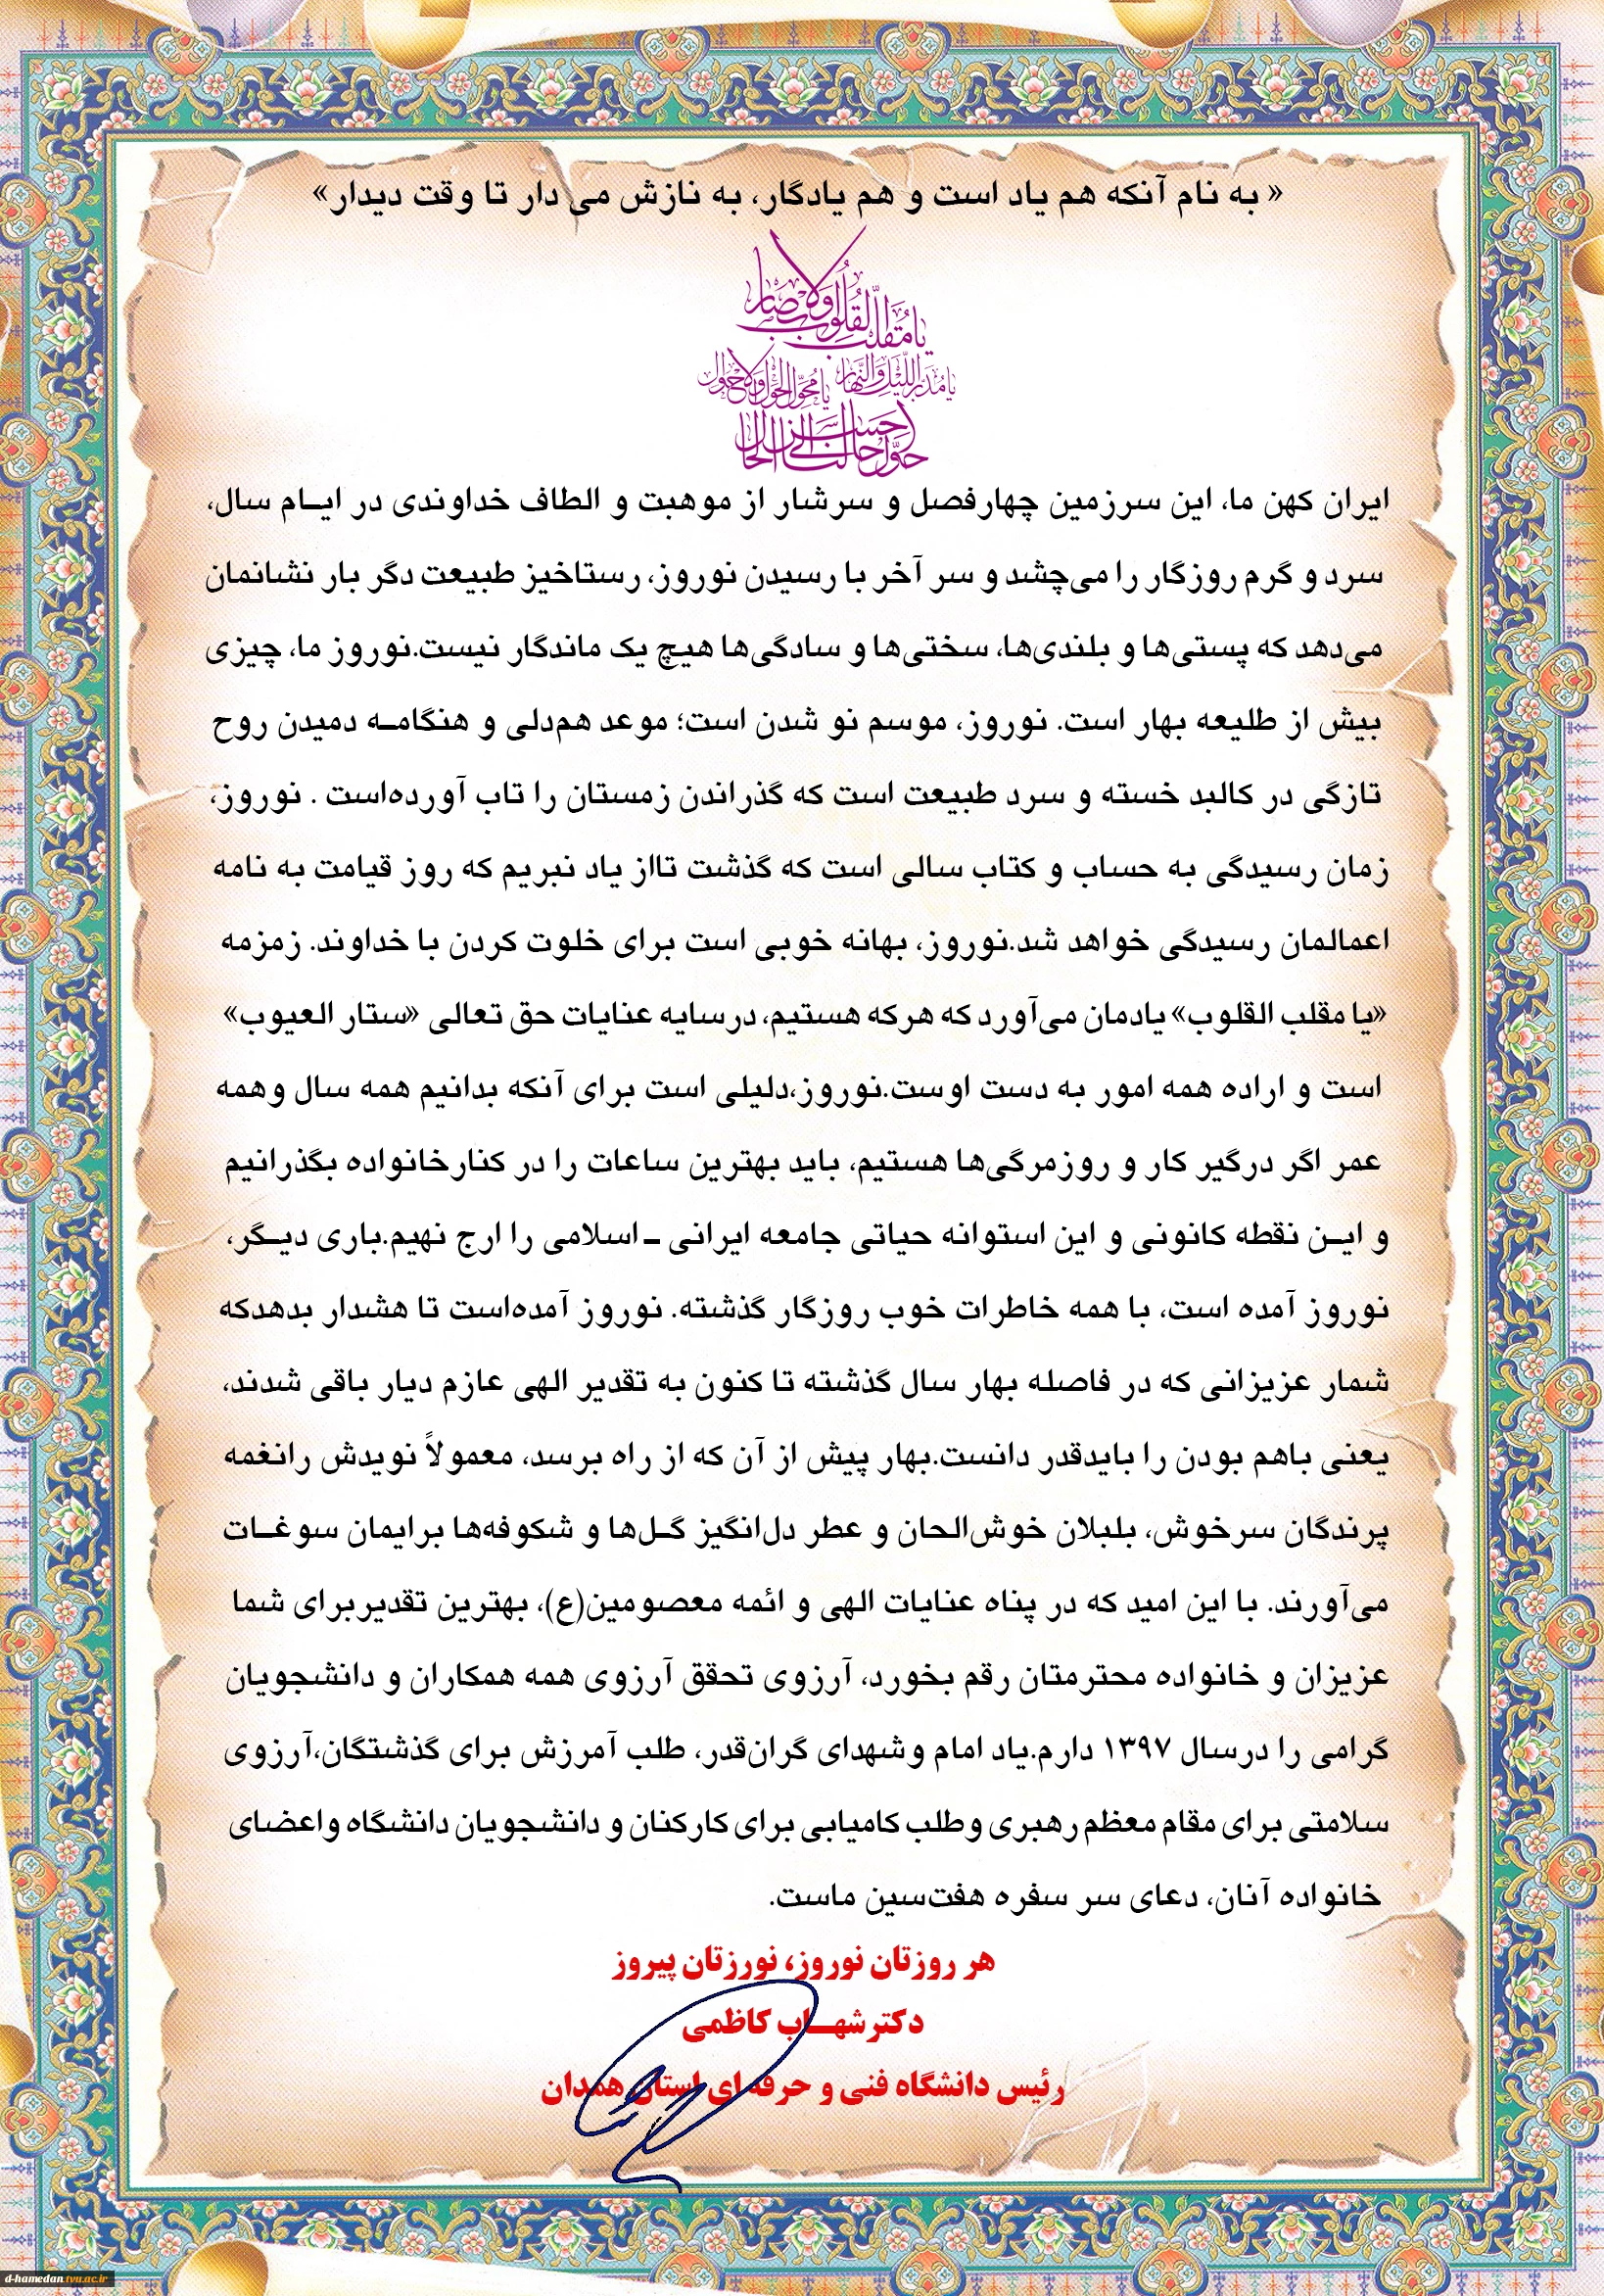 « به نام آنکه هم یاد است و هم یادگار، به نازش می دار تا وقت دیدار»
یا مُقَلِّبَ القُلُوبِ وَالاَبصار
یا مُدَبِّرَ اللَّیلِ وَالنَّهار
یا مُحَوِّلَ الحَولِ وَالاَحوال
حَوِّل حالَنا اِلی اَحسَنِ الحال
ایران کهن ما، این سرزمین چهارفصل و سرشار از موهبت و الطاف خداوندی در ایـام سال،
سرد و گرم روزگار را می‌چشد و سر آخر با رسیدن نوروز، رستاخیز طبیعت دگر بار نشانمان
می‌دهد که پستی‌ها و بلندی‌ها، سختی‌ها و سادگی‌ها هیچ یک ماندگار نیست.نوروز ما، چیزی
بیش از طلیعه بهار است. نوروز، موسم نو شدن است؛ موعد هم‌دلی و هنگامـه دمیدن روح
تازگی در کالبد خسته و سرد طبیعت است که گذراندن زمستان را تاب آورده‌است . نوروز،
زمان رسیدگی به حساب و کتاب سالی است که گذشت تااز یاد نبریم که روز قیامت به نامه
اعمالمان رسیدگی خواهد شد.نوروز، بهانه خوبی است برای خلوت کردن با خداوند. زمزمه
«یا مقلب القلوب» یادمان می‌آورد که هرکه هستیم، درسایه عنایات حق تعالی «ستار العیوب»
است و اراده همه امور به دست اوست.نوروز،دلیلی است برای آنکه بدانیم همه سال وهمه
عمر اگر درگیر کار و روزمرگی‌ها هستیم، باید بهترین ساعات را در کنارخانواده بگذرانیم
و ایـن نقطه کانونی و این استوانه حیاتی جامعه ایرانی ـ اسلامی را ارج نهیم.باری دیـگر،
نوروز آمده است، با همه خاطرات خوب روزگار گذشته. نوروز آمده‌است تا هشدار بدهدکه
شمار عزیزانی که در فاصله بهار سال گذشته تا کنون به تقدیر الهی عازم دیار باقی شدند،
یعنی باهم بودن را بایدقدر دانست.بهار پیش از آن که از راه برسد، معمولاً نویدش رانغمه
پرندگان سرخوش، بلبلان خوش‌الحان و عطر دل‌انگیز گـل‌ها و شکوفه‌ها برایمان سوغـات
می‌آورند. با این امید که در پناه عنایات الهی و ائمه معصومین(ع)، بهترین تقدیربرای شما
عزیزان و خانواده محترمتان رقم بخورد، آرزوی تحقق آرزوی همه همکاران و دانشجویان
گرامی را درسال ۱۳۹۷ دارم.یاد امام وشهدای گران‌قدر، طلب آمرزش برای گذشتگان،آرزوی
سلامتی برای مقام معظم رهبری وطلب کامیابی برای کارکنان و دانشجویان دانشگاه واعضای
خانواده آنان، دعای سر سفره هفت‌سین ماست.
هر روزتان نوروز، نورزتان پیروز
دکترشهـاب کاظمی
رئیس دانشگاه فنی و حرفه ای استان همدان
d-hamedan.tvu.ac.ir